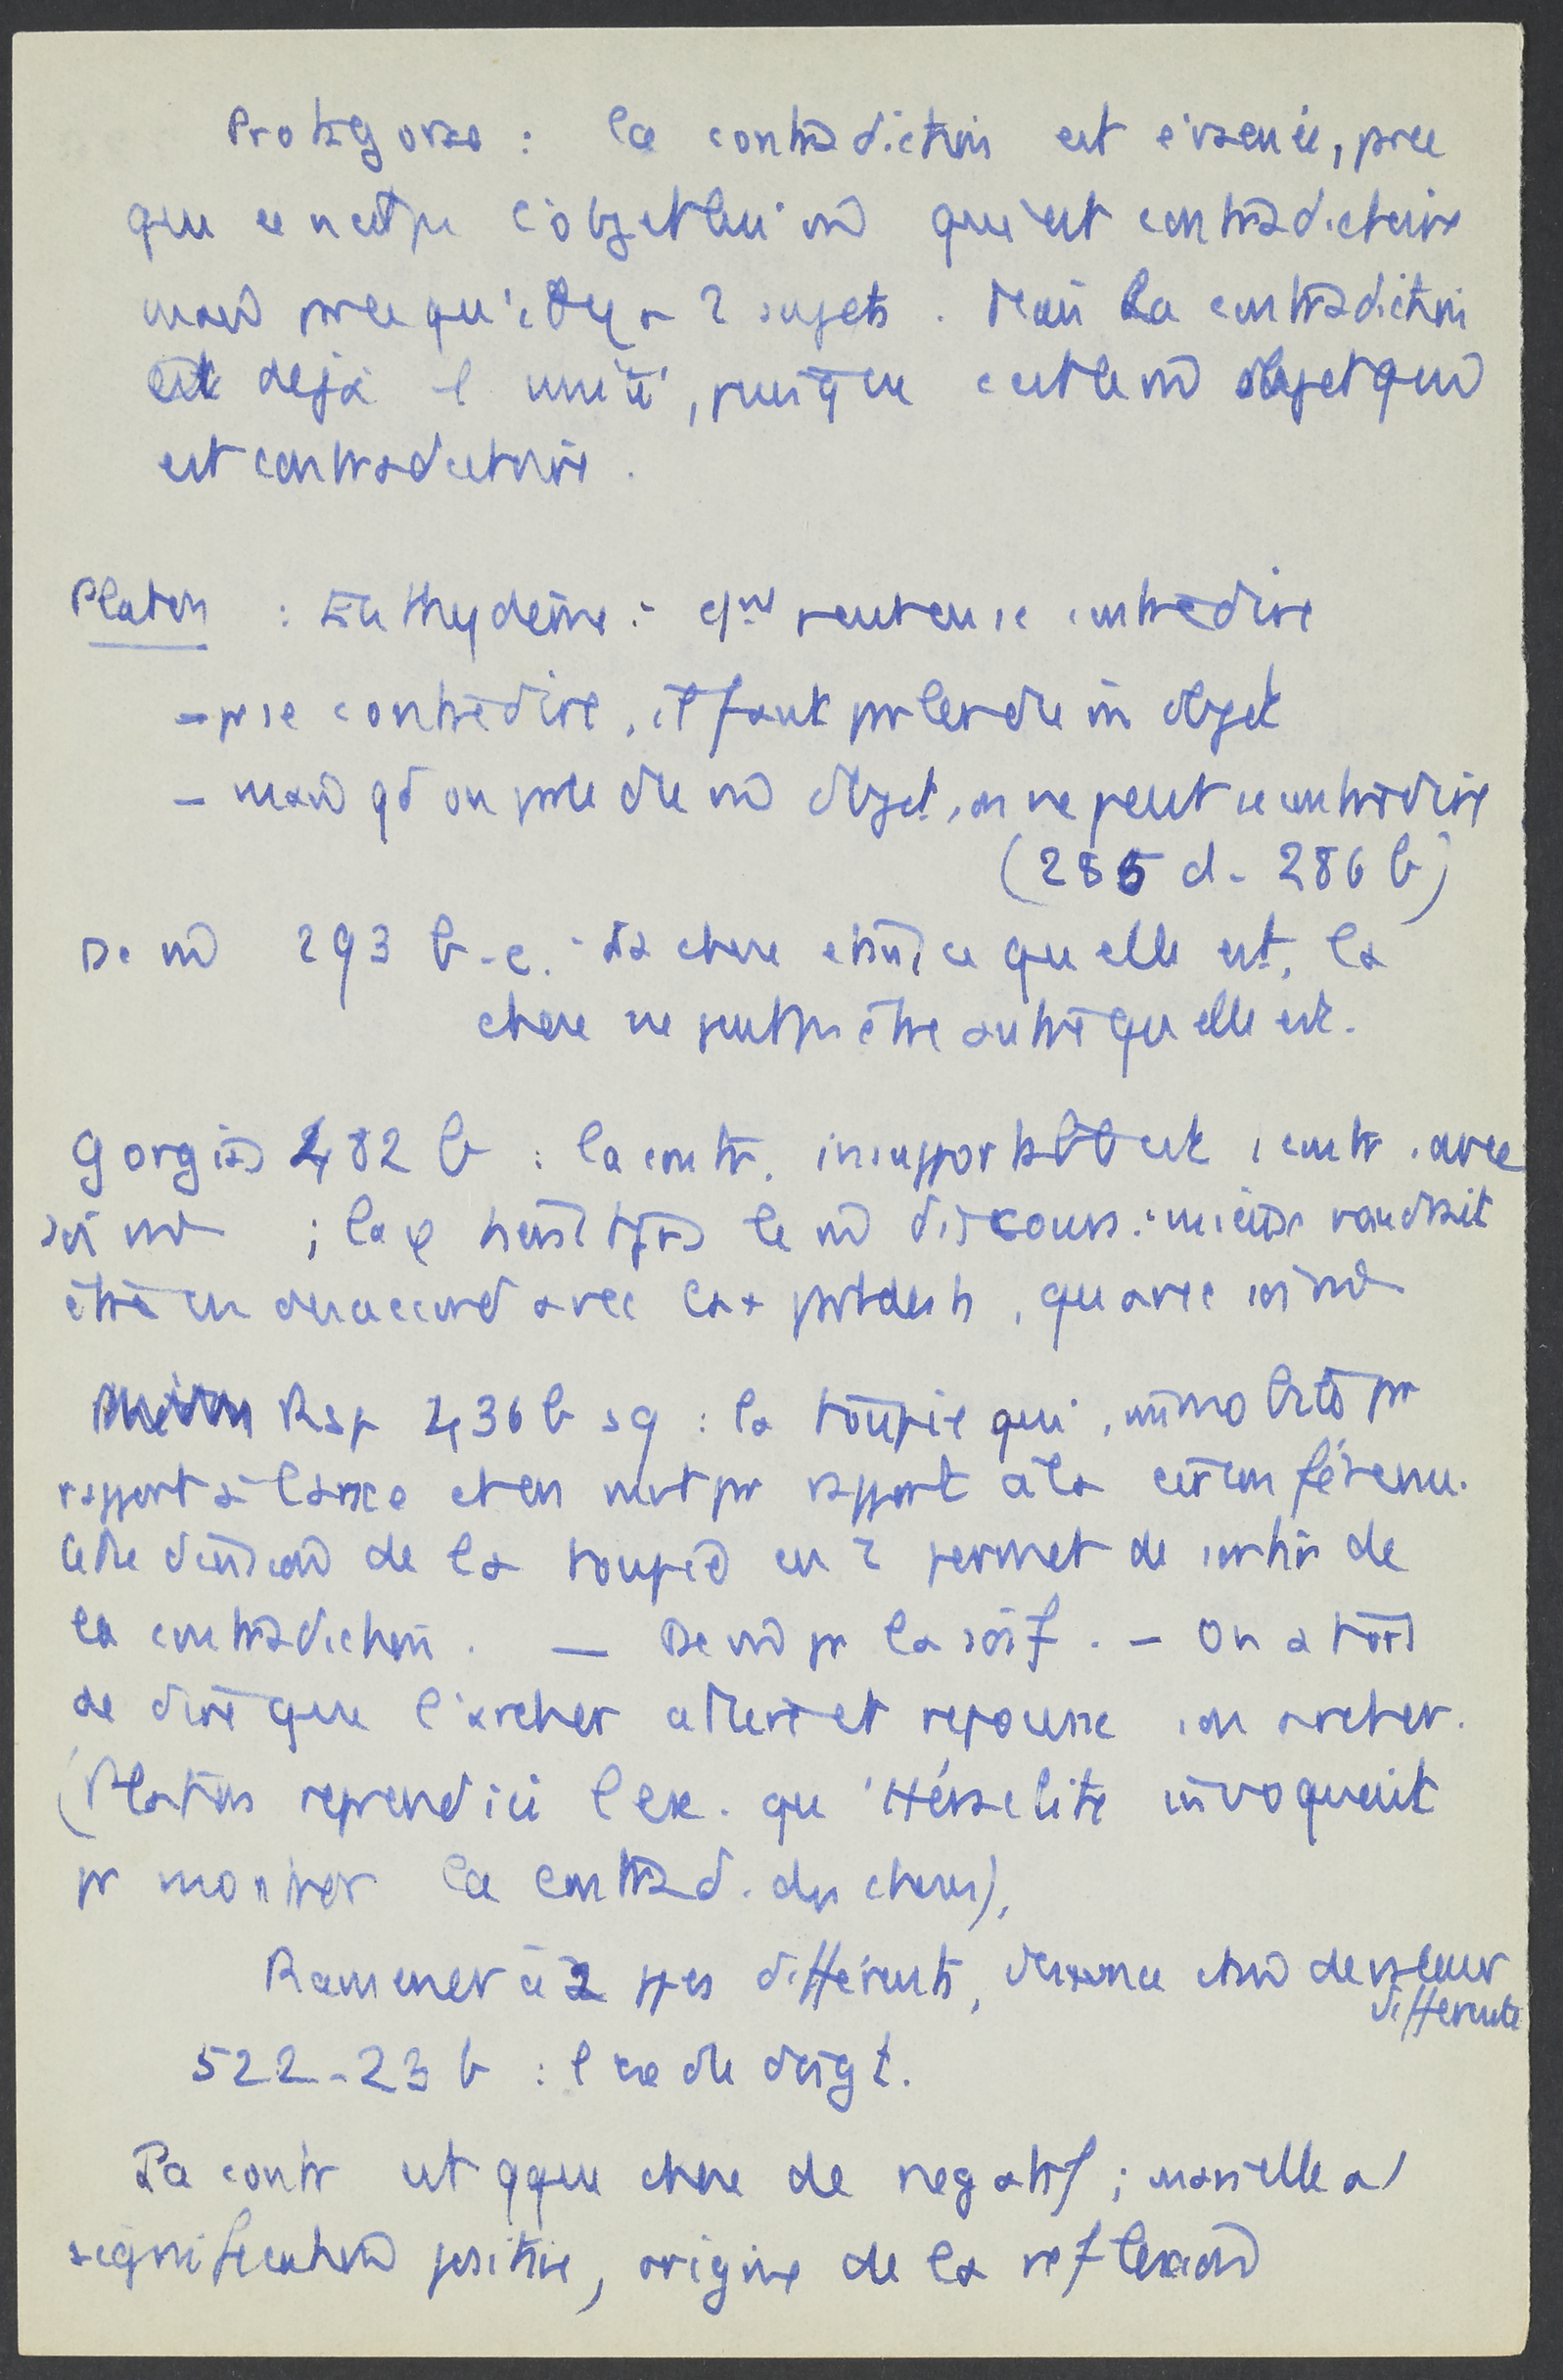 Protagoras : la contradiction est évacuée, parce
que ce n'est pas l'objet lui m̂ qui est contradictoire
mais parce qu'il y a 2 sujets. Mais la contradiction
est déjà l'unité, puisque c'est le m̂ objet qui
est contradictoire.
Platon : Euthydème : peut on se contredire
- pr se contredire, il faut parler du m̂ objet
- mais qd on parle du m̂ objet, on ne peut se contredire
(285 d - 286 b)
De m̂ 293 b-c : la chose étant ce qu'elle est, la
chose ne peut pas être autre qu'elle est.
Gorgias 482 b : la contr. insupportable est contr. avec
soi m̂ ; la φ tient tjrs le m̂ discours : mieux vaudrait
être en désaccord avec la + part des h, qu'avec soi m̂
Rep 436 b sq : la toupie qui, immobile par
rapport à l'axe et en mvt par rapport à la circonférence.
Cette division de la toupie en 2 permet de sortir de
la contradiction. — De m̂ pr la soif. - On a tort
de dire que l'archer attire et repousse son archer.
(Platon reprend ici l'ex. qu'Héraclite invoquait
pr montrer la contrad. des choses).
Ramener à 2 ppes différents, de valeur
différente
522-23 b : l'ex du doigt.
La contr est qque chose de négatif ; mais elle a 1
signification positive, origine de la réflexion